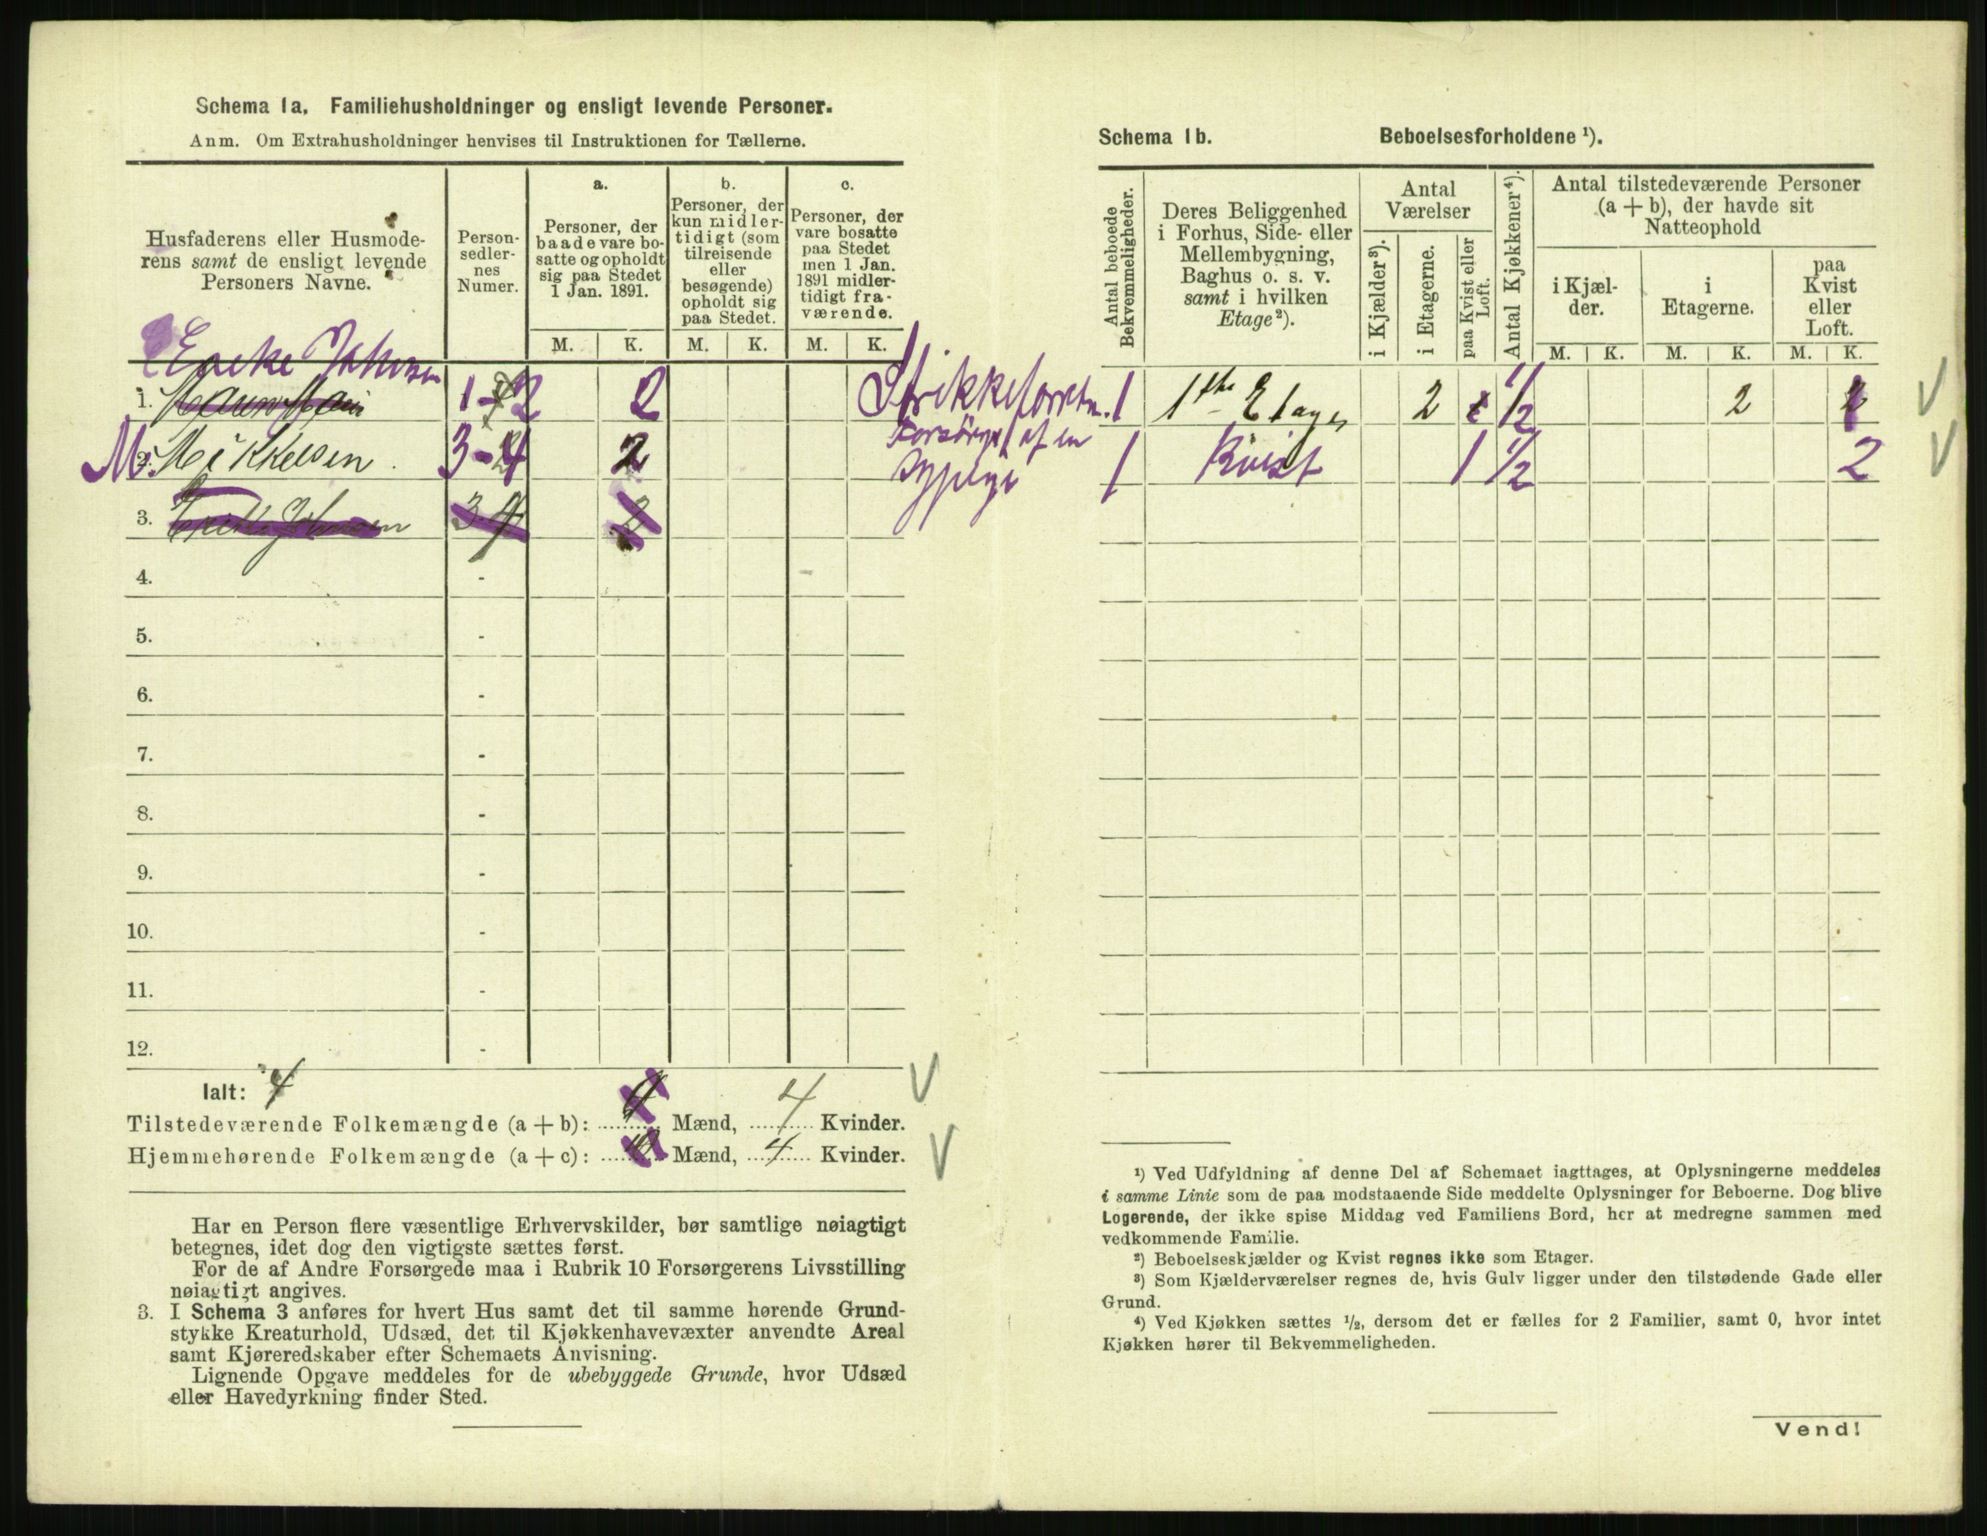 Schema 1a. Familiehusholdninger og ensligt levende Personer.
Anm. Om Extrahusholdninger henvises til Instruktionen for Tællerne.
Husfaderens eller Husmoderens samt de ensligt levende Personers Navne.
Person-sedlernes Numer.
a. Personer, der baade vare bosatte og opholdt sig paa Stedet 1 Jan. 1891.
b. Personer, der kun midlertidigt (som tilreisende eller besøgende) opholdt sig paa Stedet.
c. Personer, der vare bosatte paa Stedet men 1 Jan. 1891 midlertidigt fraværende.
M. K. M. K. M. K.
Enke Johnsen
1. 1-2 2 Strikkeforretn.
M. 2. Mikkelsen. 3-4 2 Forsørget af en Sypige
3. Johnsen 3-4 2
4. -
5. -
6. -
7. -
8. -
9. -
10. -
11. -
12. -
Ialt: 4
Tilstedeværende Folkemængde (a + b): Mænd, 4 Kvinder.
Hjemmehørende Folkemængde (a + c): Mænd, 4 Kvinder.
Har en Person flere væsentlige Erhvervskilder, bør samtlige nøiagtigt
betegnes, idet dog den vigtigste sættes først.
For de af Andre Forsørgede maa i Rubrik 10 Forsørgerens Livsstilling
nøiagtigt angives.
3. I Schema 3 anføres for hvert Hus samt det til samme hørende Grund-
stykke Kreaturhold, Udsæd, det til Kjøkkenhavevæxter anvendte Areal
samt Kjøreredskaber efter Schemaets Anvisning.
Lignende Opgave meddeles for de ubebyggede Grunde, hvor Udsæd
eller Havedyrkning finder Sted.
Schema 1b. Beboelsesforholdene ¹).
Antal beboede Bekvemmeligheder.
Deres Beliggenhed i Forhus, Side- eller Mellembygning, Baghus o. s. v. samt i hvilken Etage²).
Antal Værelser
i Kjælder³).
i Etagerne.
paa Kvist eller Loft.
Antal Kjøkkener⁴).
Antal tilstedeværende Personer (a + b), der havde sit Natteophold
i Kjælder.
i Etagerne.
paa Kvist eller Loft.
M. K. M. K. M. K.
1 1ste Etage 2 1/2 2
1 Kvist 1 1/2 2
¹) Ved Udfyldning af denne Del af Schemaet iagttages, at Oplysningerne meddeles
i samme Linie som de paa modstaaende Side meddelte Oplysninger for Beboerne. Dog blive
Logerende, der ikke spise Middag ved Familiens Bord, her at medregne sammen med
vedkommende Familie.
²) Beboelseskjælder og Kvist regnes ikke som Etager.
³) Som Kjælderværelser regnes de, hvis Gulv ligger under den tilstødende Gade eller
Grund.
⁴) Ved Kjøkken sættes ½, dersom det er fælles for 2 Familier, samt 0, hvor intet
Kjøkken hører til Bekvemmeligheden.
Vend!